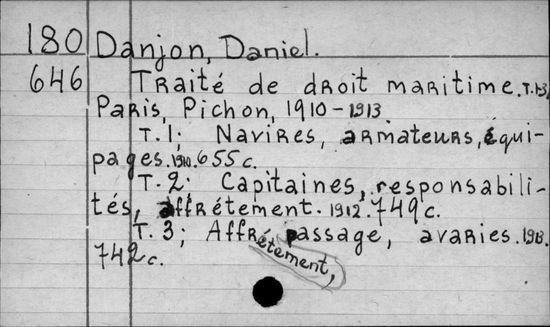 180 Danjon, Daniel.
646 Traité de droit maritime. T.1-3,
Paris, Pichon, 1910-1913
T.1; Navires, armateurs, équi-
pages. 1910. 655 c.
T.2. Capitaines, responsabili-
tés, affrétement. 1912. 749 c.
T.3; Affrétement, passage, avaries. 1913.
742 c.